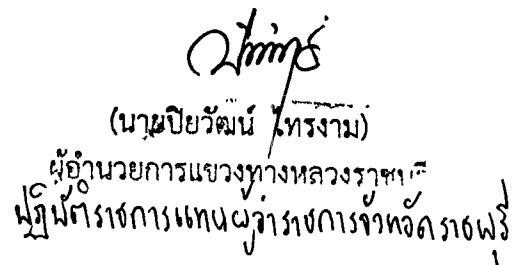 (นายปิยวัฒน์ ไทรงาม)
ผู้อำนวยการแขวงทางหลวงราชบุรี
ปฏิบัติราชการแทนผู้ว่าราชการจังหวัดราชบุรี